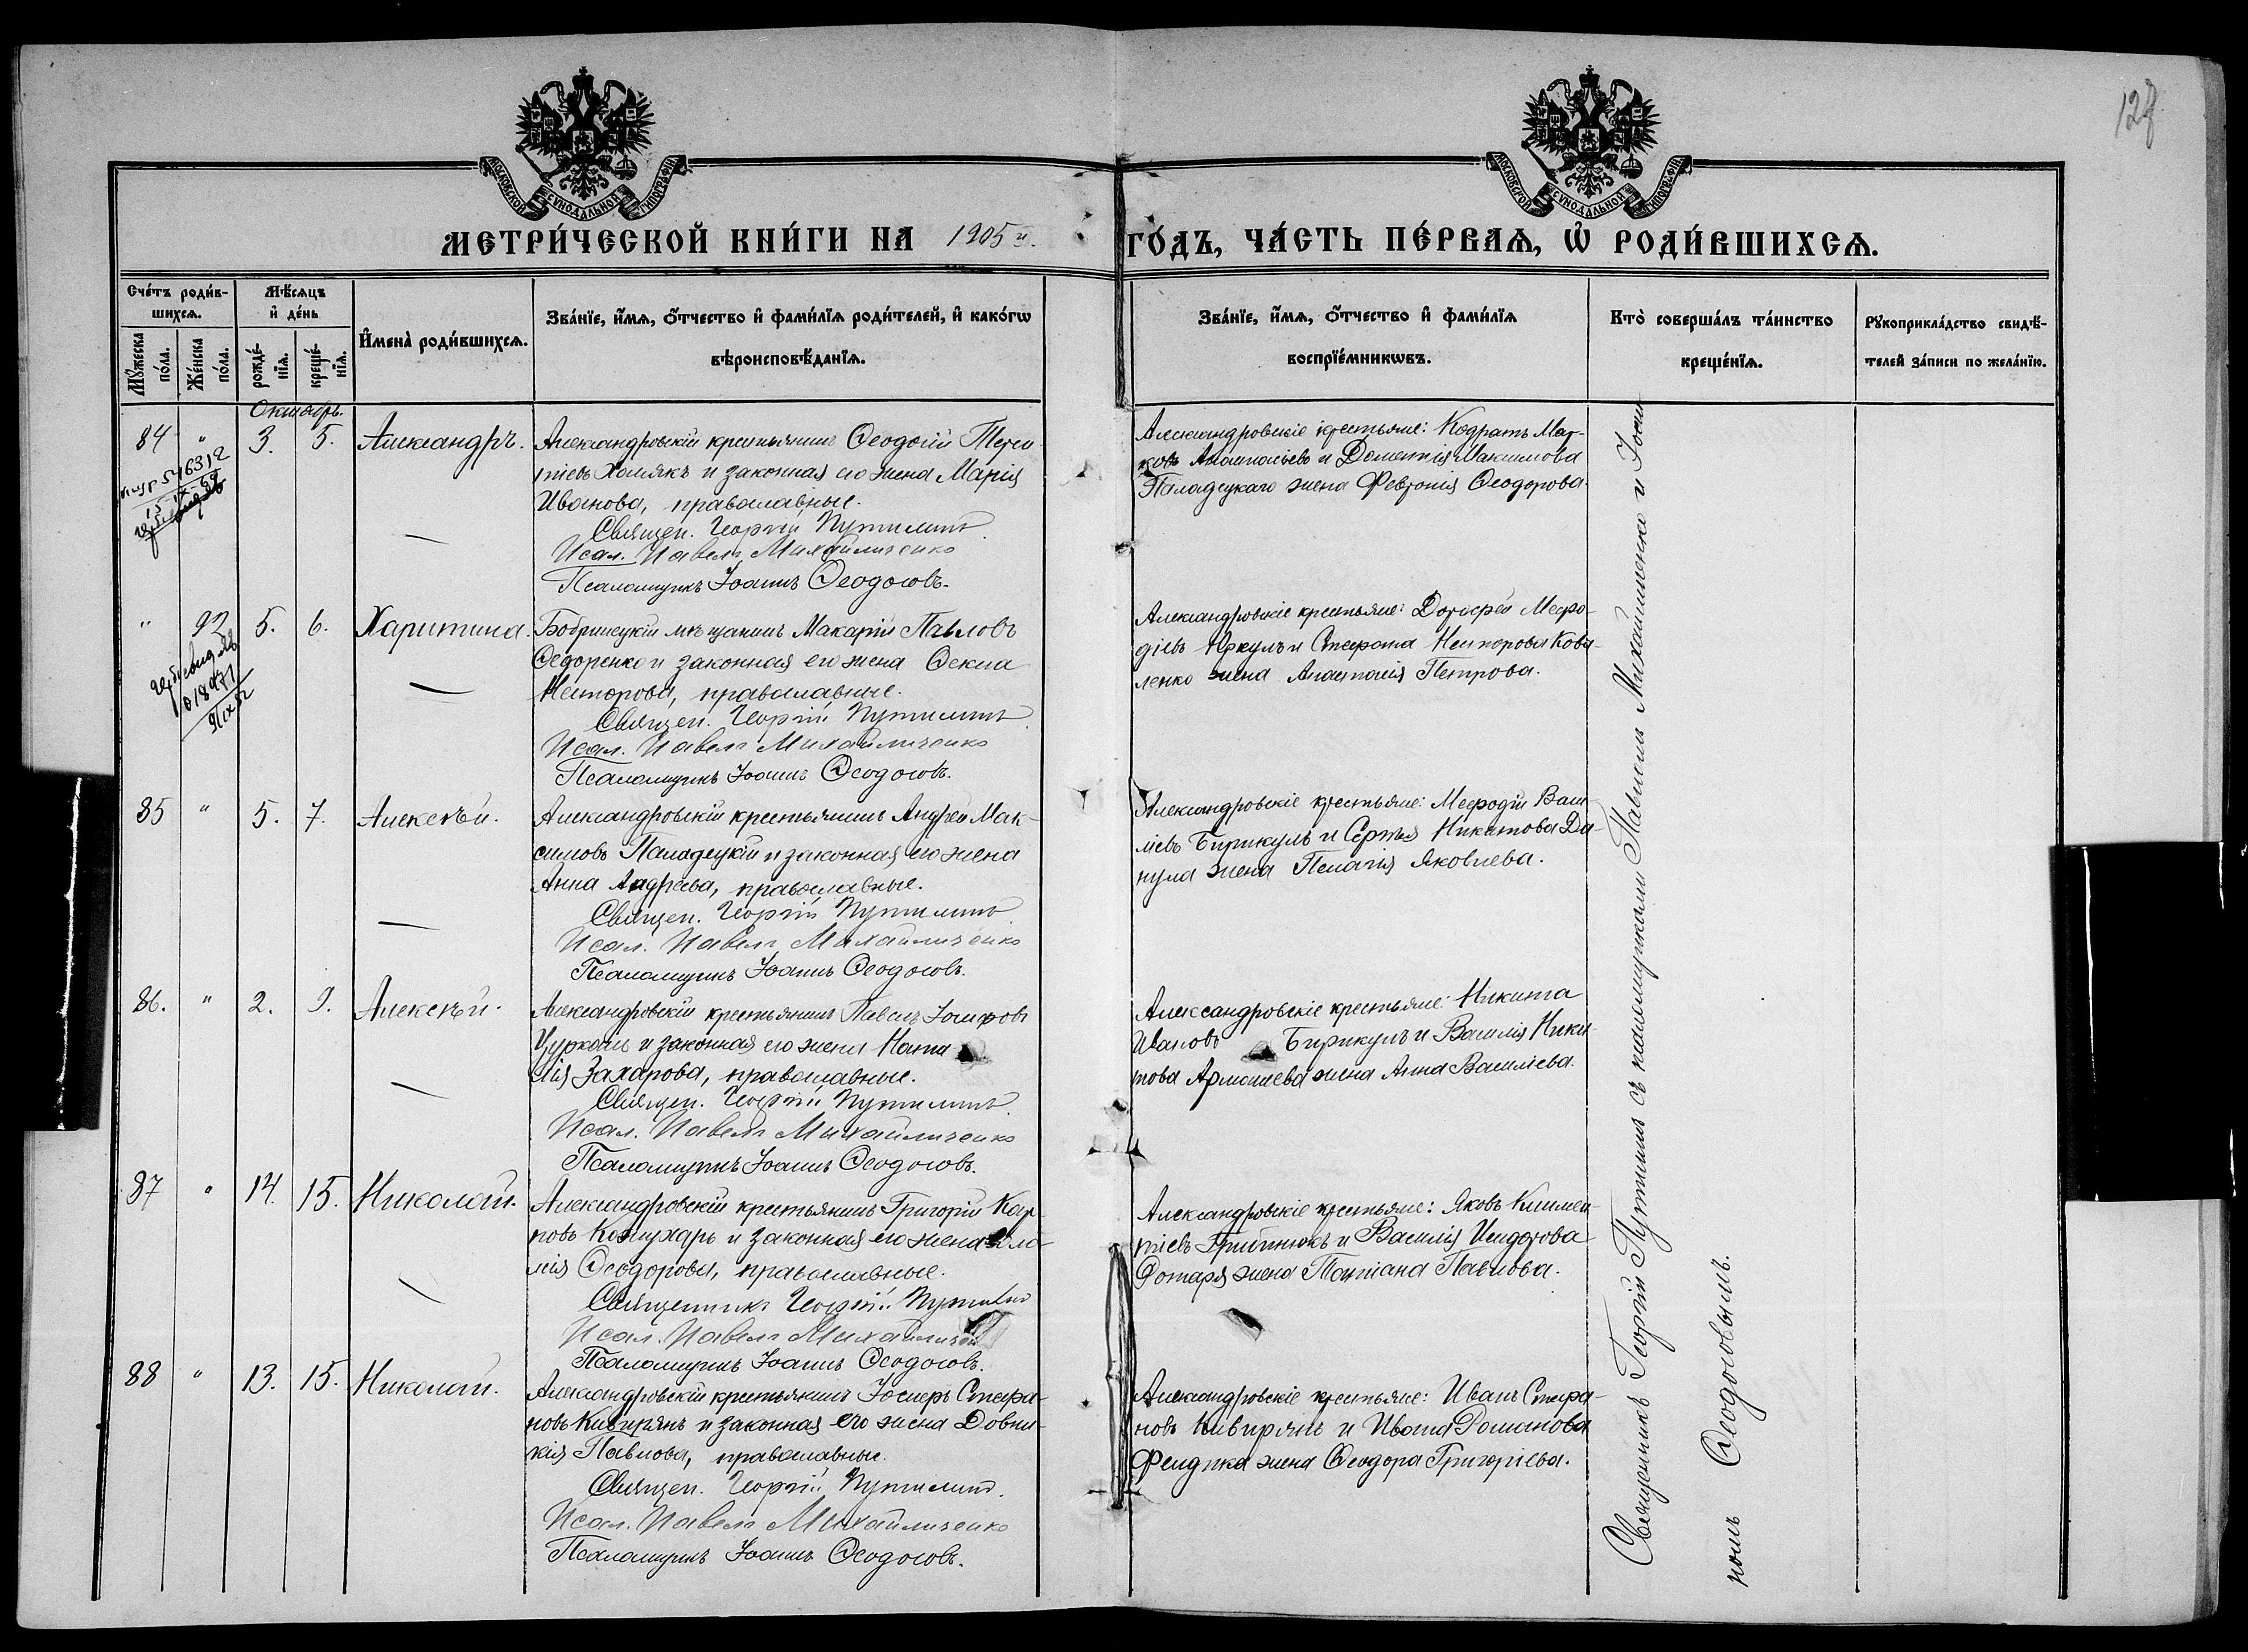 128
МОСКОВСКОЙ СѴНОДАЛЬНОЙ ТИПОГРАФІИ
МОСКОВСКОЙ СѴНОДАЛЬНОЙ ТИПОГРАФІИ
МЕТРИ́ЧЕСКОЙ КНИ́ГИ НА 1905 й. ГО́ДЪ, ЧА́СТЬ ПЕ́РВАѦ, Ѡ РОДИ́ВШИХСѦ.
Сче́тъ роди́в-
шихсѧ.
Мѣ́сѧцъ
и де́нь
Мꙋ́жеска по́ла.
Же́нска по́ла.
рожде́-
нїѧ.
креще́-
нїѧ.
И҆мена̀ роди́вшихсѧ.
Зва́нїе, и҆́мѧ, ѻ҆́тчество и҆ фами́лїѧ роди́телей, и҆ како́гѡ
вѣроисповѣ́данїѧ.
Зва́нїе, и҆́мѧ, ѻ҆́тчество и҆ фами́лїѧ
воспрїе́мникѡвъ.
Кто̀ соверша́лъ та́инство
креще́нїѧ.
Рꙋкоприкла́дство свидѣ́-
телей за́писи по жела́нїю.
Октябрь.
84 " 3. 5. Александръ.
Александровскій крестьянинъ Ѳеодосій Терен-
тіевъ Хомякъ и законная его жена Марія
Иванова, православные.
Священ. Георгій Путилинъ
Псал. Павелъ Михайличенко
Псаломщикъ Іоаннъ Ѳеодосовъ.
Александровскіе крестьяне: Кодратъ Мар-
ковъ и Максимова
Паладецкаго жена Февронія Ѳеодорова.
" 92 5. 6. Харитина.
Бобринецкій мѣщанинъ Макарій Павловъ
Ѳедоренко и законная его жена Ѳекла
Несторова, православные.
Священ. Георгій Путилинъ
Псал. Павелъ Михайличенко
Псаломщикъ Іоаннъ Ѳеодосовъ.
Александровскіе крестьяне: Мефо-
діевъ и Стефана Несторова Кова-
ленко жена Анастасія Петрова.
85 " 5. 7. Алексѣй.
Александровскій крестьянинъ Андрей Мак-
симовъ Паладецкій и законная его жена
Анна Андреева, православные.
Священ. Георгій Путилинъ
Псал. Павелъ Михайличенко
Псаломщикъ Іоаннъ Ѳеодосовъ.
Александровскіе крестьяне: Мефодій Васи-
ліевъ Бирикулъ и Сергія Никитова Да-
нула жена Пелагія Яковлева.
86. " 2. 9. Алексѣй.
Александровскій крестьянинъ Павелъ Іосифовъ
Цурканъ и законная его жена Ната-
лія Захарова, православные.
Священ. Георгій Путилинъ
Псал. Павелъ Михайличенко
Псаломщикъ Іоаннъ Ѳеодосовъ.
Александровскіе крестьяне: Никита
Ивановъ Бирикулъ и Василія Ники-
това жена Анна Василіева.
87 " 14. 15. Николай.
Александровскій крестьянинъ Григорій Кар-
повъ Кожухарь и законная его жена
Ѳеодорова, православные.
Священникъ Георгій Путилинъ
Псал. Павелъ Михайличен
Псаломщикъ Іоаннъ Ѳеодосовъ.
Александровскіе крестьяне: Яковъ Климен-
тіевъ и Василія Исидорова
Ротаря жена Татіана Павлова.
88 " 13. 15. Николай.
Александровскій крестьянинъ Іосифъ Стефа-
новъ Кивирянъ и законная его жена Домни-
кія Павлова, православные.
Священ. Георгій Путилинъ.
Псал. Павелъ Михайличенко
Псаломщикъ Іоаннъ Ѳеодосовъ.
Александровскіе крестьяне: Иванъ Стефа-
новъ Кивирянъ и Ивана Романова
жена Ѳеодора Григоріева.
Священникъ Георгій Путилинъ съ псаломщиками Павломъ Михайличенко и Іоан-
номъ Ѳеодосовымъ.